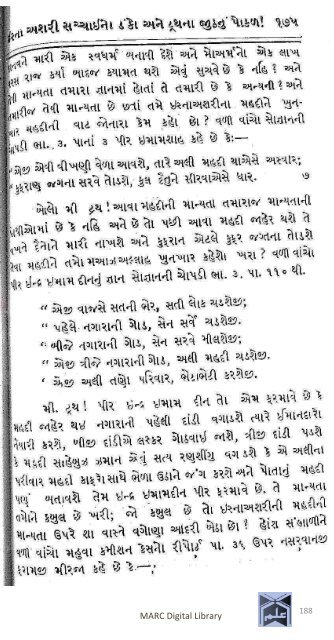 રનો અશરી સચ્ચાઈનો ડંકો અને દ્રૂથના જીઠનું પોકળ! ૧૭૫
મારી એક સ્વધર્મ બનાવી દેશે અને એક લાખ
રાજ કર્યા બાદજ કયામત થશે એવું સુચવે છે કે નહિ? અને
માન્યતા તમારા જ્ઞાનમાં હોતાં તે તમારી છે કે અન્યની? અને
તમારીજ તેવી માન્યતા છે છતાં તમે ઇસ્નાઅશરીના મહદીને ખુન-
મહદીની વાટ જોનારા કેમ કહો છો? વળી વાંચો સોજ્ઞાનની
ચોપડી ભા. ૩. પાનાં ૩ પીર ઇમામશાહ કહે છે કેઃ—
“એજી એવી વીખણી વેળા આવશે, તારે અલી મહદી થાએસે અસ્વાર;
“કુફરાણુ જગના સરવે તોડશે, કુલ દૈતુને સીરવાએસે ધાર. ૭
બોલો મી ટ્રથ! આવા મહદીની માન્યતા તમારાજ માન્યતાની
છે કે નહિ અને છે તો પછી આવા મહદી જાહેર થશે તે
દૈતાને મારી નાખશે અને કુફરાન એટલે કુફર જગતના તોડશે
તેવા મહદીને તમો મઆઝઅલ્લાહ ખુનખાર કહેશો ખરા? વળી વાંચો
પીર ઇન્દ્ર ઇમામ દીનનું જ્ઞાન સોજ્ઞાનની ચોપડી ભા. ૩. પા. ૧૧૦ થી.
“ એજી વાજસે સતની ભેર, સતી લોક ચડશેજી;
“ પહેલે નગારાની ગોડ, સેન સર્વે ચડશેજી.
“ બીજે નગારાની ગોડ, સેન સરવે મીલશેજી;
“ એજી ત્રીજે નગારાની ગોડ, અલી મહદી ચડશેજી.
“ એજી અલી તણો પરિવાર, ભેટાભેટી કરશેજી.
મી. ટ્રથ! પીર ઇન્દ્ર ઇમામ દીન તો એમ ફરમાવે છે કે
મહદી જાહેર થઇ નગારાની પહેલી દાંડી વગાડશે ત્યારે ઈમાનદારો
તૈયારી કરશે, બીજી દાંડીએ લશ્કર ગોઠવાઇ જાશે, ત્રીજી દાંડી પડશે
કે મહદી સાહેબુઝ ઝમાન એવું સત્ય રણશીંગુ વગડશે કે એ અલીના
પરીવાર મહદી કાફરો સાથે ભેળા ઉઠાને જંગ કરશે અને પોતાનું મહદી
પણું બતાવશે તેમ ઇન્દ્ર ઇમામદીન પીર ફરમાવે છે. તે માન્યતા
કબુલ છે ખરી; જો કબુલ છે તો ઇસ્નાઅશરીની મહદીની
માન્યતા ઉપરે શા વાસ્તે વગોણા આદરી બેઠા છો! હોશ સંભાળીને
વળી વાંચો મહુવા કમીશન કેસનો રીપોર્ટ પા. ૩૬ ઉપર નસરવાનજી
ફરામજી મીરજા કહે છે કે—;
MARC Digital Library
188